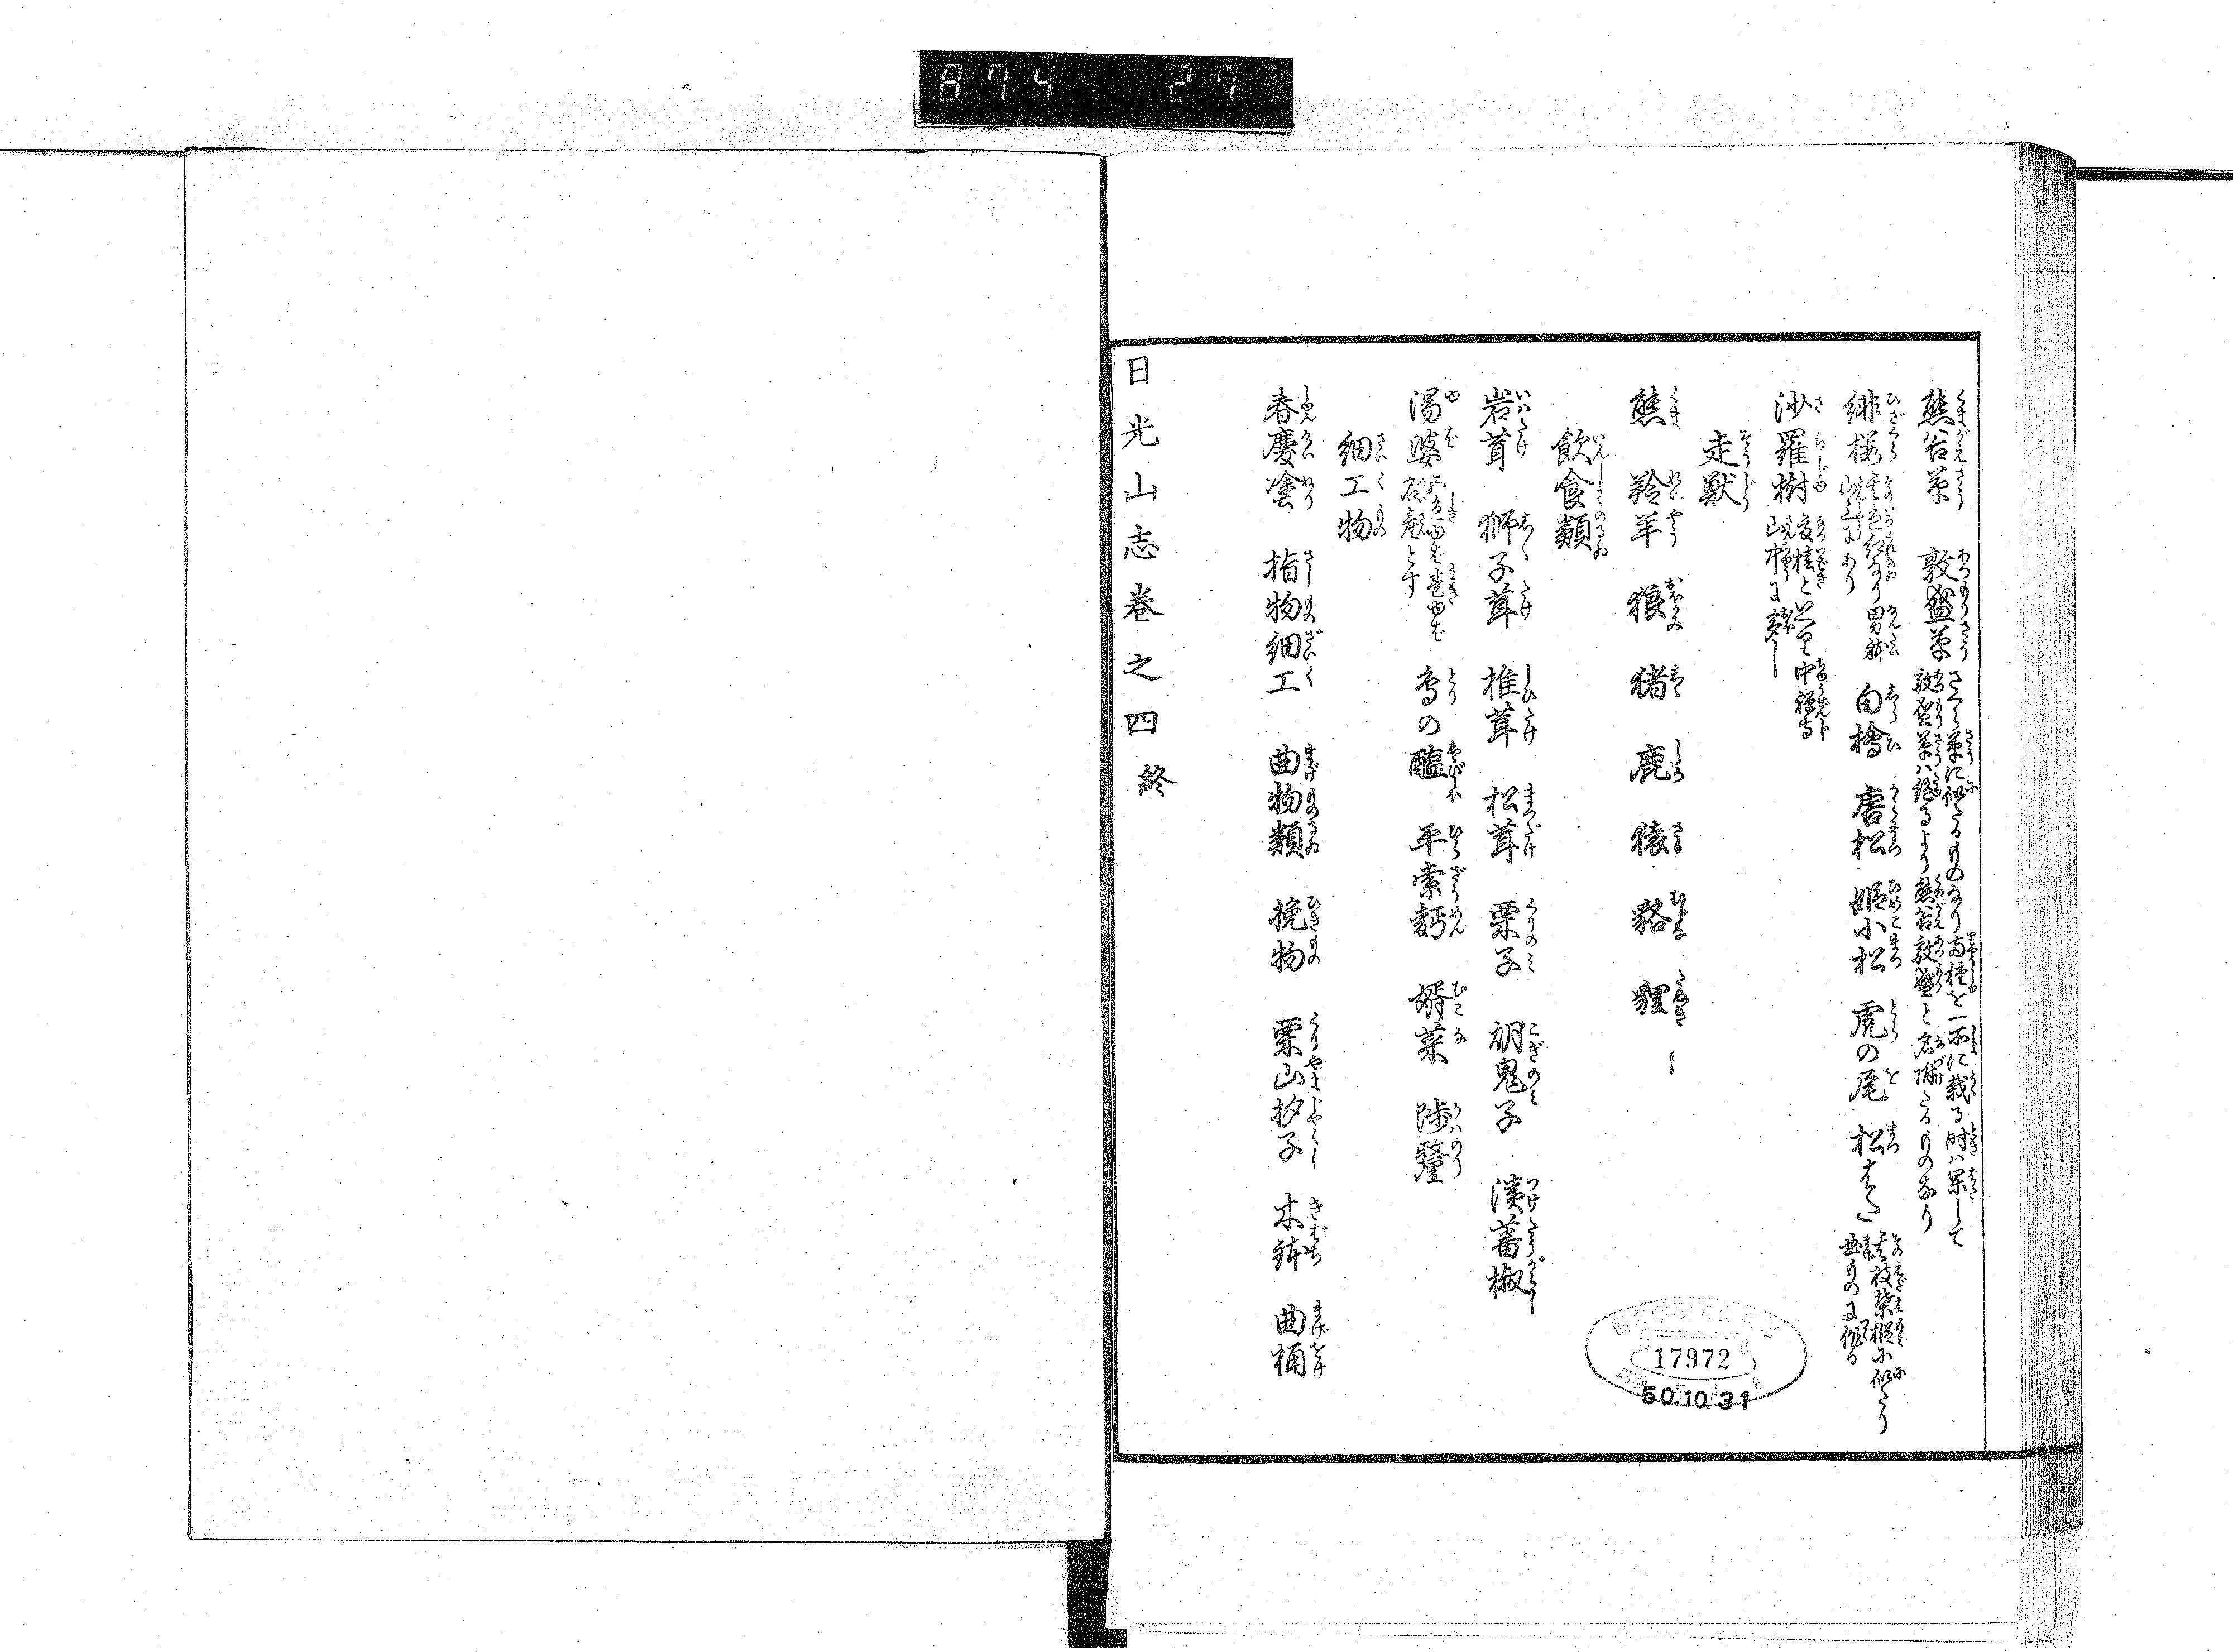 874 273
熊谷草 敦盛草 さくら草に似たるものなり両種を一所に載る時ハ果して
敦盛草ハ絶るより熊谷敦盛と名附たるものなり
緋桜 其色紅なり男躰
山上にあり
白檜 唐松 姫小松 虎の尾 松 其枝葉樅に似たり
曲ものに作る
沙羅樹 夏椿と云 中禅寺
山中に多し
走獣
熊 羚羊 狼 猪 鹿 猿 貉 狸
飲食類
岩茸 獅子茸 椎茸 松茸 栗子 胡鬼子 漬蕃椒
湯婆
名産とす
鳥の醢 平索麪 婿菜
細工物
春慶塗 指物細工 曲物類 挽物 栗山杓子 木鉢 曲桶
日光山志巻之四終
17972
50.10.31